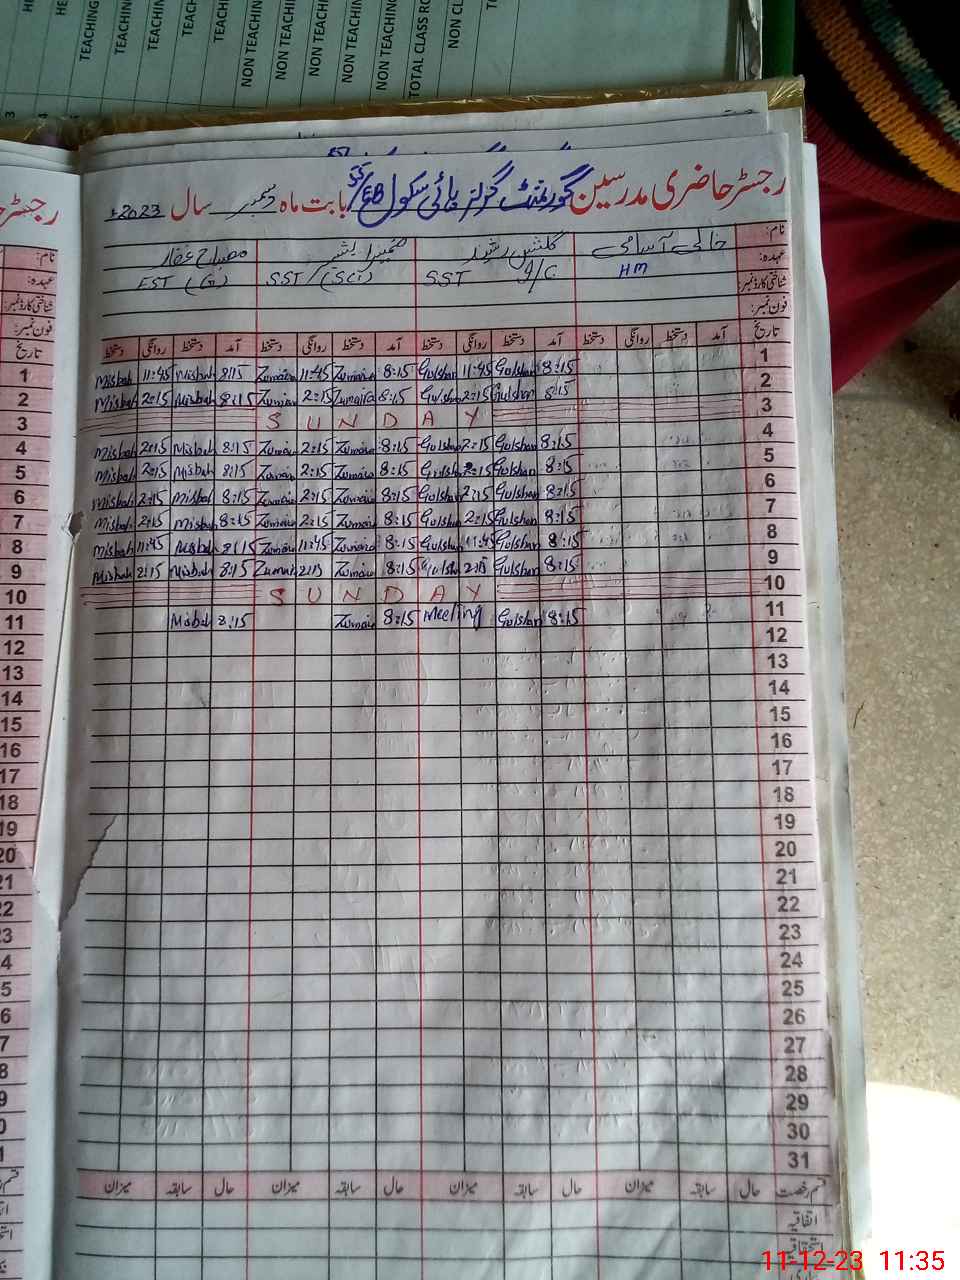 HE
TEACHING
TEACHING
TEACHING
TEACH
TEACHIN
NON TEACHING
NON TEACHIN
NON TEACHIN
NON TEACHIN
NON TEACHIN
TOTAL CLASS RO
NON CL
رجسٹر حاضری مدرسین گورنمنٹ گرلز ہائی سکول 55/EB بابت ماہ دسمبر سال 2023ء
نام: خالی آسامی گلشن رشید مصباح غفار
عہدہ: HM SST I/C SST (Sci) EST (G)
شناختی کارڈ نمبر:
فون نمبر:
تاریخ آمد دستخط روانگی دستخط آمد دستخط روانگی دستخط آمد دستخط روانگی دستخط آمد دستخط روانگی دستخط تاریخ
1 Misbah 11:45 Misbah 8:15 Zumaira 11:45 Zumaira 8:15 Gulshan 11:45 Gulshan 8:15 1
2 Misbah 2:15 Misbah 8:15 Zumaira 2:15 Zumaira 8:15 Gulshan 2:15 Gulshan 8:15 2
3 SUNDAY 3
4 Misbah 2:15 Misbah 8:15 Zumaira 2:15 Zumaira 8:15 Gulshan 2:15 Gulshan 8:15 4
5 Misbah 2:15 Misbah 8:15 Zumaira 2:15 Zumaira 8:15 Gulshan 2:15 Gulshan 8:15 5
6 Misbah 2:15 Misbah 8:15 Zumaira 2:15 Zumaira 8:15 Gulshan 2:15 Gulshan 8:15 6
7 Misbah 2:15 Misbah 8:15 Zumaira 2:15 Zumaira 8:15 Gulshan 2:15 Gulshan 8:15 7
8 Misbah 11:45 Misbah 8:15 Zumaira 11:45 Zumaira 8:15 Gulshan 11:45 Gulshan 8:15 8
9 Misbah 2:15 Misbah 8:15 Zumaira 2:15 Zumaira 8:15 Gulshan 2:15 Gulshan 8:15 9
10 SUNDAY 10
11 Misbah 8:15 Zumaira 8:15 Meeting Gulshan 8:15 11
12 12
13 13
14 14
15 15
16 16
17 17
18 18
19 19
20 20
21 21
22 22
23 23
24
25
26
27
28
29
30
31
قسم رخصت حال سابقہ میزان حال سابقہ میزان حال سابقہ میزان حال سابقہ میزان
اتفاقیہ
استحقاقیہ
11-12-23 11:35